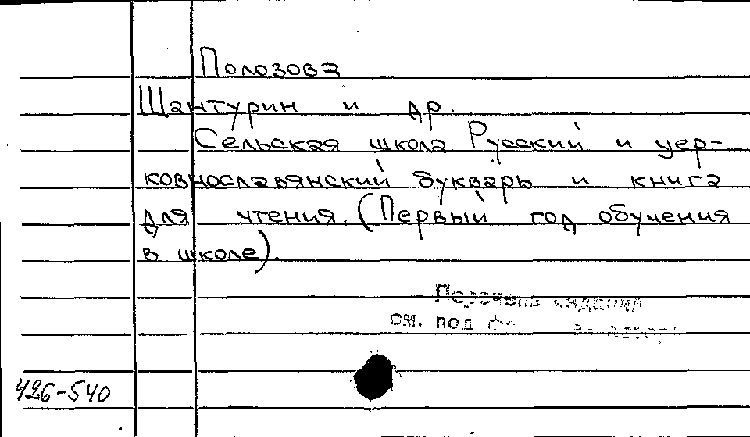 Полозова
Шантурин и др.
Сельская школа Русский и цер-
ковнославянский букварь и книга
для чтения. (Первый год обучения
в школе).
Перечень изданий
см. под
426-540